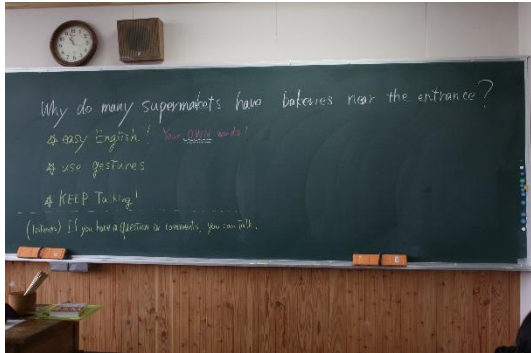 Why do many supermarkets have bakeries near the entrance?
☆ easy English! Your OWN words!
☆ use gestures
☆ KEEP Talking!
(listener) If you have a question or comments, you can talk.